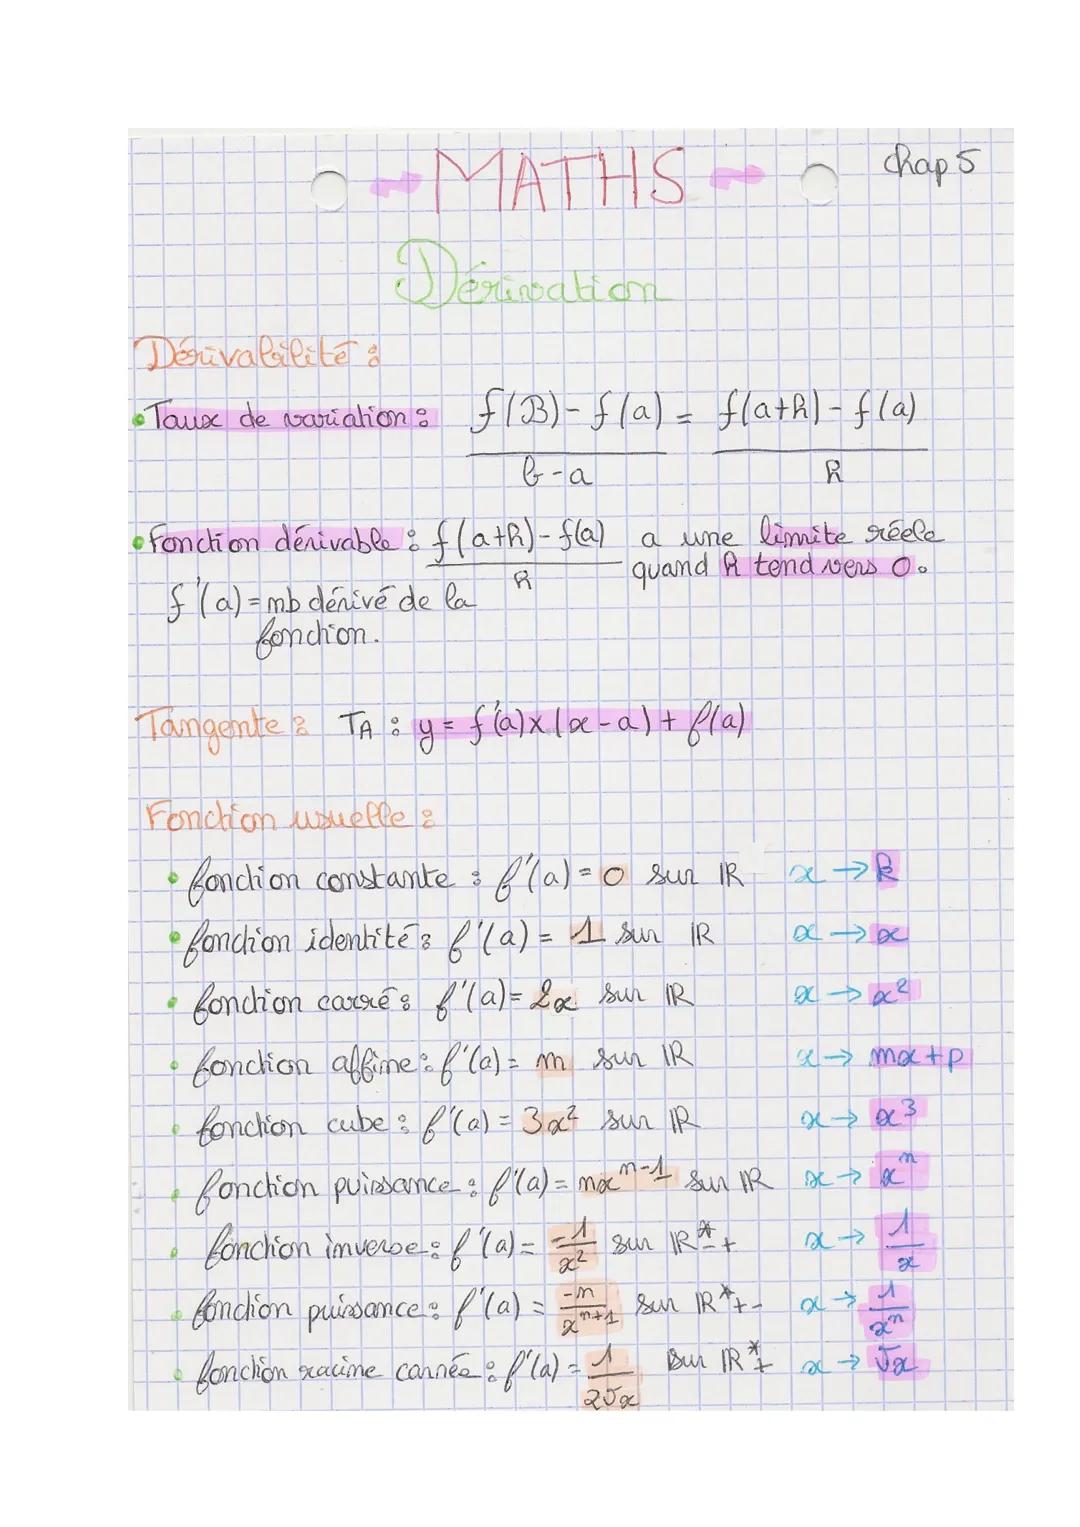 MATHS
Chap 5
Dérivation
Dérivabilité :
• Taux de variation : f(B)-f(a) = f(a+h)-f(a)
b-a h
• Fonction dérivable : f(a+h)-f(a) a une limite réele
h quand h tend vers 0.
f'(a) = nb dérivé de la
fonction.
Tangente : TA : y = f'(a)x(x-a)+f(a)
Fonction usuelle :
• fonction constante : f'(a) = 0 sur IR x → k
• fonction identité : f'(a) = 1 sur IR x → x
• fonction carré : f'(a) = 2x sur IR x → x²
• fonction affine : f'(a) = m sur IR x → mx+p
• fonction cube : f'(a) = 3x² sur IR x → x³
• fonction puissance : f'(a) = nxⁿ⁻¹ sur IR x → xⁿ
• fonction inverse : f'(a) = -1/x² sur IR*-+ x → 1/x
• fonction puissance : f'(a) = -n/xⁿ⁺¹ sur IR*+- x → 1/xⁿ
• fonction racine carrée : f'(a) = 1/2√x sur IR*+ x → √x